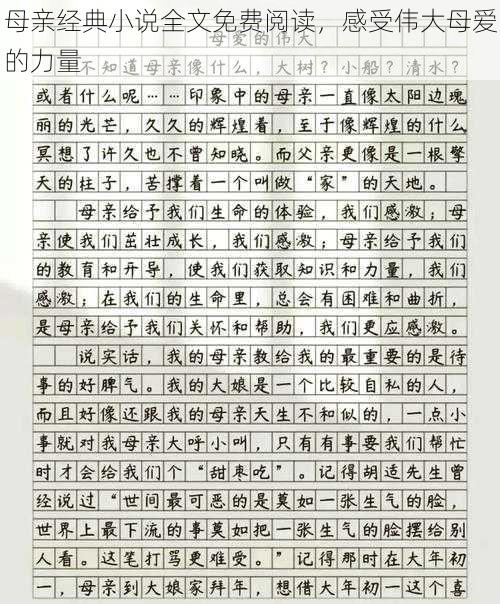 母亲经典小说全文免费阅读，感受伟大母爱
的力量
母爱的伟大
不知道母亲像什么，大树？小船？清水？
或者什么呢……印象中的母亲一直像太阳边瑰
丽的光芒，久久的辉煌着，至于像辉煌的什么
冥想了许久也不曾知晓。而父亲更像是一根擎
天的柱子，苦撑着一个叫做“家”的天地。
母亲给予我们生命的体验，我们感激；母
亲使我们茁壮成长，我们感激；母亲给予我们
的教育和开导，使我们获取知识和力量，我们
感激；在我们的生命里，总会有困难和曲折，
是母亲给予我们关怀和帮助，我们更应感激。
说实话，我的母亲教给我的最重要的是待
事的好脾气。我的大娘是一个比较自私的人，
而且好像还跟我的母亲天生不和似的，一点小
事就对我母亲大呼小叫，只有有事要我们帮忙
时才会给我们个“甜枣吃”。记得胡适先生曾
经说过“世间最可恶的是莫如一张生气的脸，
世界上最下流的事莫如把一张生气的脸摆给别
人看。这笔打骂更难受。”记得那时在大年初
一，母亲到大娘家拜年，想借大年初一这个喜